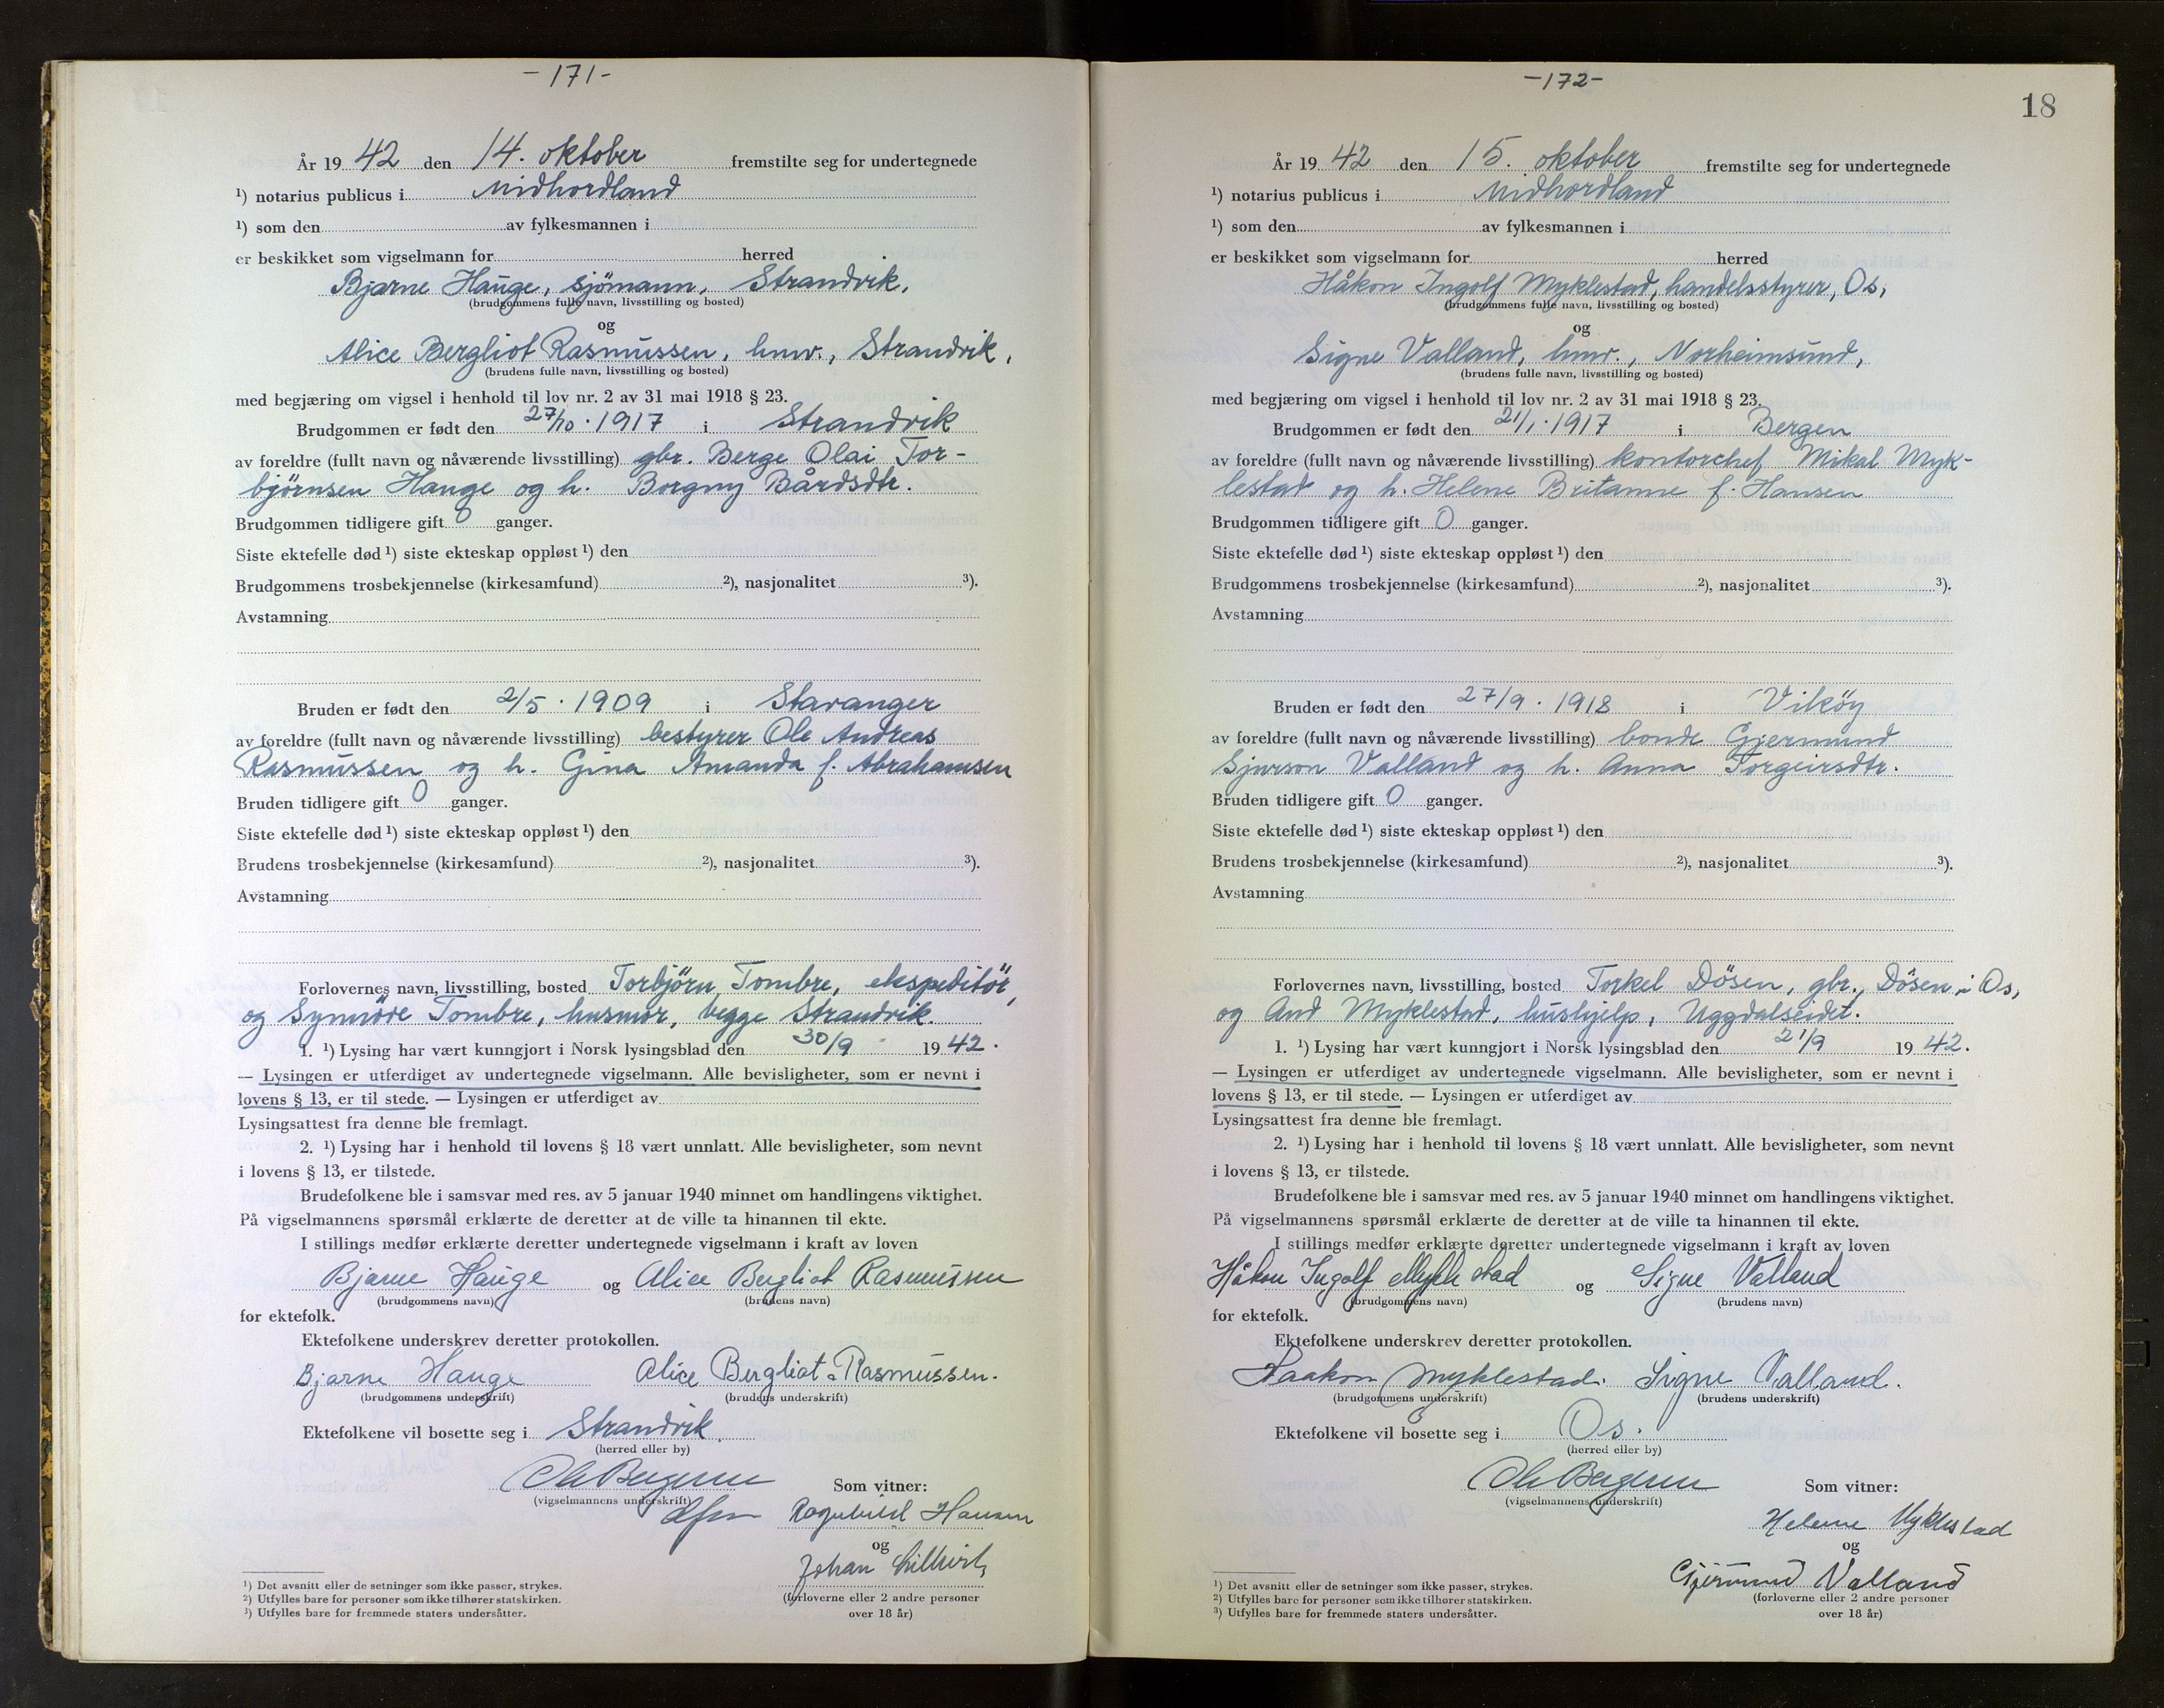 -171-
År 19 42 den 14. oktober fremstilte seg for undertegnede
¹) notarius publicus i Midhordland
¹) som den av fylkesmannen i
er beskikket som vigselmann for herred
Bjarne Hauge, sjömann, Strandvik,
(brudgommens fulle navn, livsstilling og bosted)
og
Alice Bergliot Rasmussen, hmv., Strandvik,
(brudens fulle navn, livsstilling og bosted)
med begjæring om vigsel i henhold til lov nr. 2 av 31 mai 1918 § 23.
Brudgommen er født den 27/10 . 1917 i Strandvik
av foreldre (fullt navn og nåværende livsstilling) gbr. Berge Olai Tor-
björnsen Hauge og h. Borgny Bårdsdtr.
Brudgommen tidligere gift 0 ganger.
Siste ektefelle død ¹) siste ekteskap oppløst ¹) den
Brudgommens trosbekjennelse (kirkesamfund) ²), nasjonalitet ³).
Avstamning
Bruden er født den 2/5 . 1909 i Stavanger
av foreldre (fullt navn og nåværende livsstilling) bestyrer Ole Andreas
Rasmussen og h. Gina Amanda f. Abrahamsen
Bruden tidligere gift 0 ganger.
Siste ektefelle død ¹) siste ekteskap oppløst ¹) den
Brudens trosbekjennelse (kirkesamfund) ²), nasjonalitet ³).
Avstamning
Forlovernes navn, livsstilling, bosted Torbjörn Tombre, ekspeditör,
og Synnöve Tombre, husmor, begge Strandvik.
1. ¹) Lysing har vært kunngjort i Norsk lysingsblad den 30/9 19 42.
— Lysingen er utferdiget av undertegnede vigselmann. Alle bevisligheter, som er nevnt i
lovens § 13, er til stede. — Lysingen er utferdiget av
Lysingsattest fra denne ble fremlagt.
2. ¹) Lysing har i henhold til lovens § 18 vært unnlatt. Alle bevisligheter, som nevnt
i lovens § 13, er tilstede.
Brudefolkene ble i samsvar med res. av 5 januar 1940 minnet om handlingens viktighet.
På vigselmannens spørsmål erklærte de deretter at de ville ta hinannen til ekte.
I stillings medfør erklærte deretter undertegnede vigselmann i kraft av loven
Bjarne Hauge og Alice Bergliot Rasmussen
(brudgommens navn) (brudens navn)
for ektefolk.
Ektefolkene underskrev deretter protokollen.
Bjarne Hauge Alice Bergliot Rasmussen.
(brudgommens underskrift) (brudens underskrift)
Ektefolkene vil bosette seg i Strandvik.
(herred eller by)
Som vitner:
(vigselmannens underskrift)
Ragnhild Hansen
og
Johan
(forloverne eller 2 andre personer
over 18 år)
¹) Det avsnitt eller de setninger som ikke passer, strykes.
²) Utfylles bare for personer som ikke tilhører statskirken.
³) Utfylles bare for fremmede staters undersåtter.
-172-
18
År 19 42 den 15. oktober fremstilte seg for undertegnede
¹) notarius publicus i Midhordland
¹) som den av fylkesmannen i
er beskikket som vigselmann for herred
Håkon Ingolf Myklestad, handelsstyrer, Os,
(brudgommens fulle navn, livsstilling og bosted)
og
Signe Valland, hmv., Norheimsund,
(brudens fulle navn, livsstilling og bosted)
med begjæring om vigsel i henhold til lov nr. 2 av 31 mai 1918 § 23.
Brudgommen er født den 21/1 . 1917 i Bergen
av foreldre (fullt navn og nåværende livsstilling) kontorchef Mikal Myk-
lestad og h. Helene Britanne f. Hansen
Brudgommen tidligere gift 0 ganger.
Siste ektefelle død ¹) siste ekteskap oppløst ¹) den
Brudgommens trosbekjennelse (kirkesamfund) ²), nasjonalitet ³).
Avstamning
Bruden er født den 27/9 . 1918 i Viköy
av foreldre (fullt navn og nåværende livsstilling) bonde Gjermund
Sjurson Valland og h. Anna Torgeirsdtr.
Bruden tidligere gift 0 ganger.
Siste ektefelle død ¹) siste ekteskap oppløst ¹) den
Brudens trosbekjennelse (kirkesamfund) ²), nasjonalitet ³).
Avstamning
Forlovernes navn, livsstilling, bosted Torkel Dösen, gbr., Dösen i Os,
og Aud Myklestad, hushjelp, Uggdalseidet.
1. ¹) Lysing har vært kunngjort i Norsk lysingsblad den 21/9 19 42.
— Lysingen er utferdiget av undertegnede vigselmann. Alle bevisligheter, som er nevnt i
lovens § 13, er til stede. — Lysingen er utferdiget av
Lysingsattest fra denne ble fremlagt.
2. ¹) Lysing har i henhold til lovens § 18 vært unnlatt. Alle bevisligheter, som nevnt
i lovens § 13, er tilstede.
Brudefolkene ble i samsvar med res. av 5 januar 1940 minnet om handlingens viktighet.
På vigselmannens spørsmål erklærte de deretter at de ville ta hinannen til ekte.
I stillings medfør erklærte deretter undertegnede vigselmann i kraft av loven
Håkon Ingolf Myklestad og Signe Valland
(brudgommens navn) (brudens navn)
for ektefolk.
Ektefolkene underskrev deretter protokollen.
Haakon Myklestad. Signe Valland.
(brudgommens underskrift) (brudens underskrift)
Ektefolkene vil bosette seg i Os.
(herred eller by)
Som vitner:
(vigselmannens underskrift)
Helene Myklestad
og
Gjermund Valland
(forloverne eller 2 andre personer
over 18 år)
¹) Det avsnitt eller de setninger som ikke passer, strykes.
²) Utfylles bare for personer som ikke tilhører statskirken.
³) Utfylles bare for fremmede staters undersåtter.